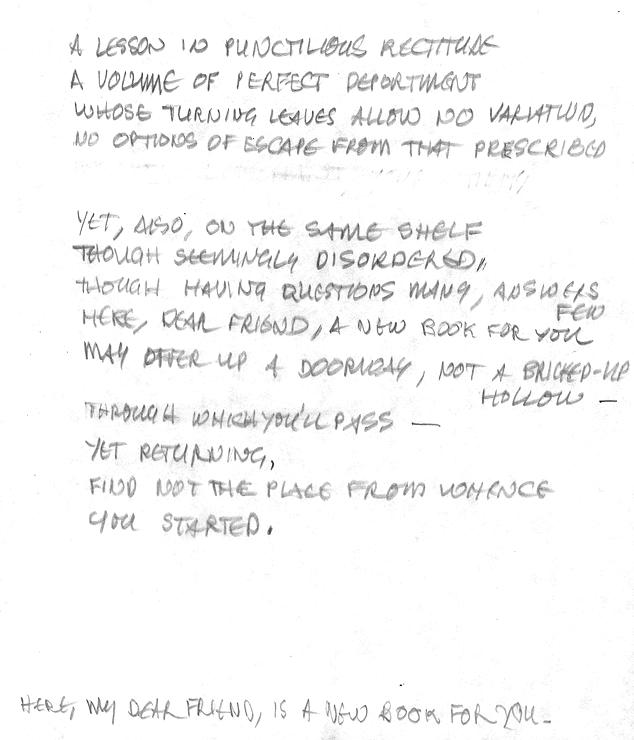 A LESSON IN PUNCTILIOUS RECTITUDE
A VOLUME OF PERFECT DEPORTMENT
WHOSE TURNING LEAVES ALLOW NO VARIATION,
NO OPTIONS OF ESCAPE FROM THAT PRESCRIBED
YET, ALSO, ON THE SAME SHELF
THOUGH SEEMINGLY DISORDERED,
THOUGH HAVING QUESTIONS MANY, ANSWERS
FEW
HERE, DEAR FRIEND, A NEW BOOK FOR YOU
MAY OFFER UP A DOORWAY, NOT A BRICKED-UP
HOLLOW —
THROUGH WHICH YOU'LL PASS —
YET RETURNING,
FIND NOT THE PLACE FROM WHENCE
YOU STARTED.
HERE, MY DEAR FRIEND, IS A NEW BOOK FOR YOU –